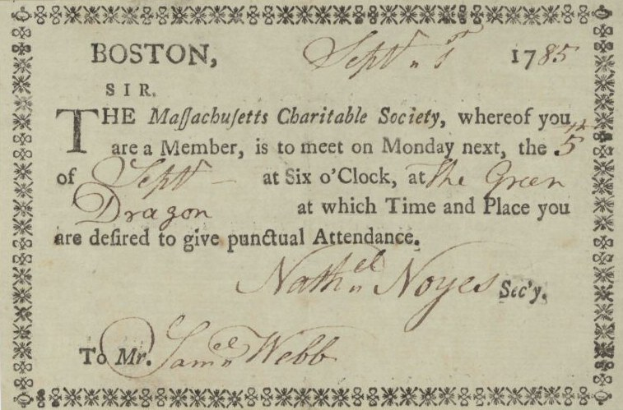 BOSTON, Septr 1st 1785
SIR,
THE Maſſachuſetts Charitable Society, whereof you
are a Member, is to meet on Monday next, the 5th
of Septr at Six o'Clock, at The Green
Dragon at which Time and Place you
are deſired to give punctual Attendance.
Nathel Noyes Sec'y.
To Mr. Samel Webb